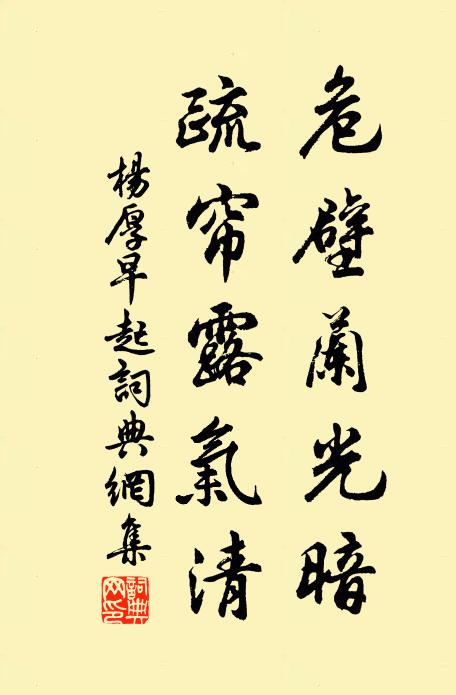 危壁蘭光暗
疏帘露氣清
楊厚早起詞典網集
詞典网印